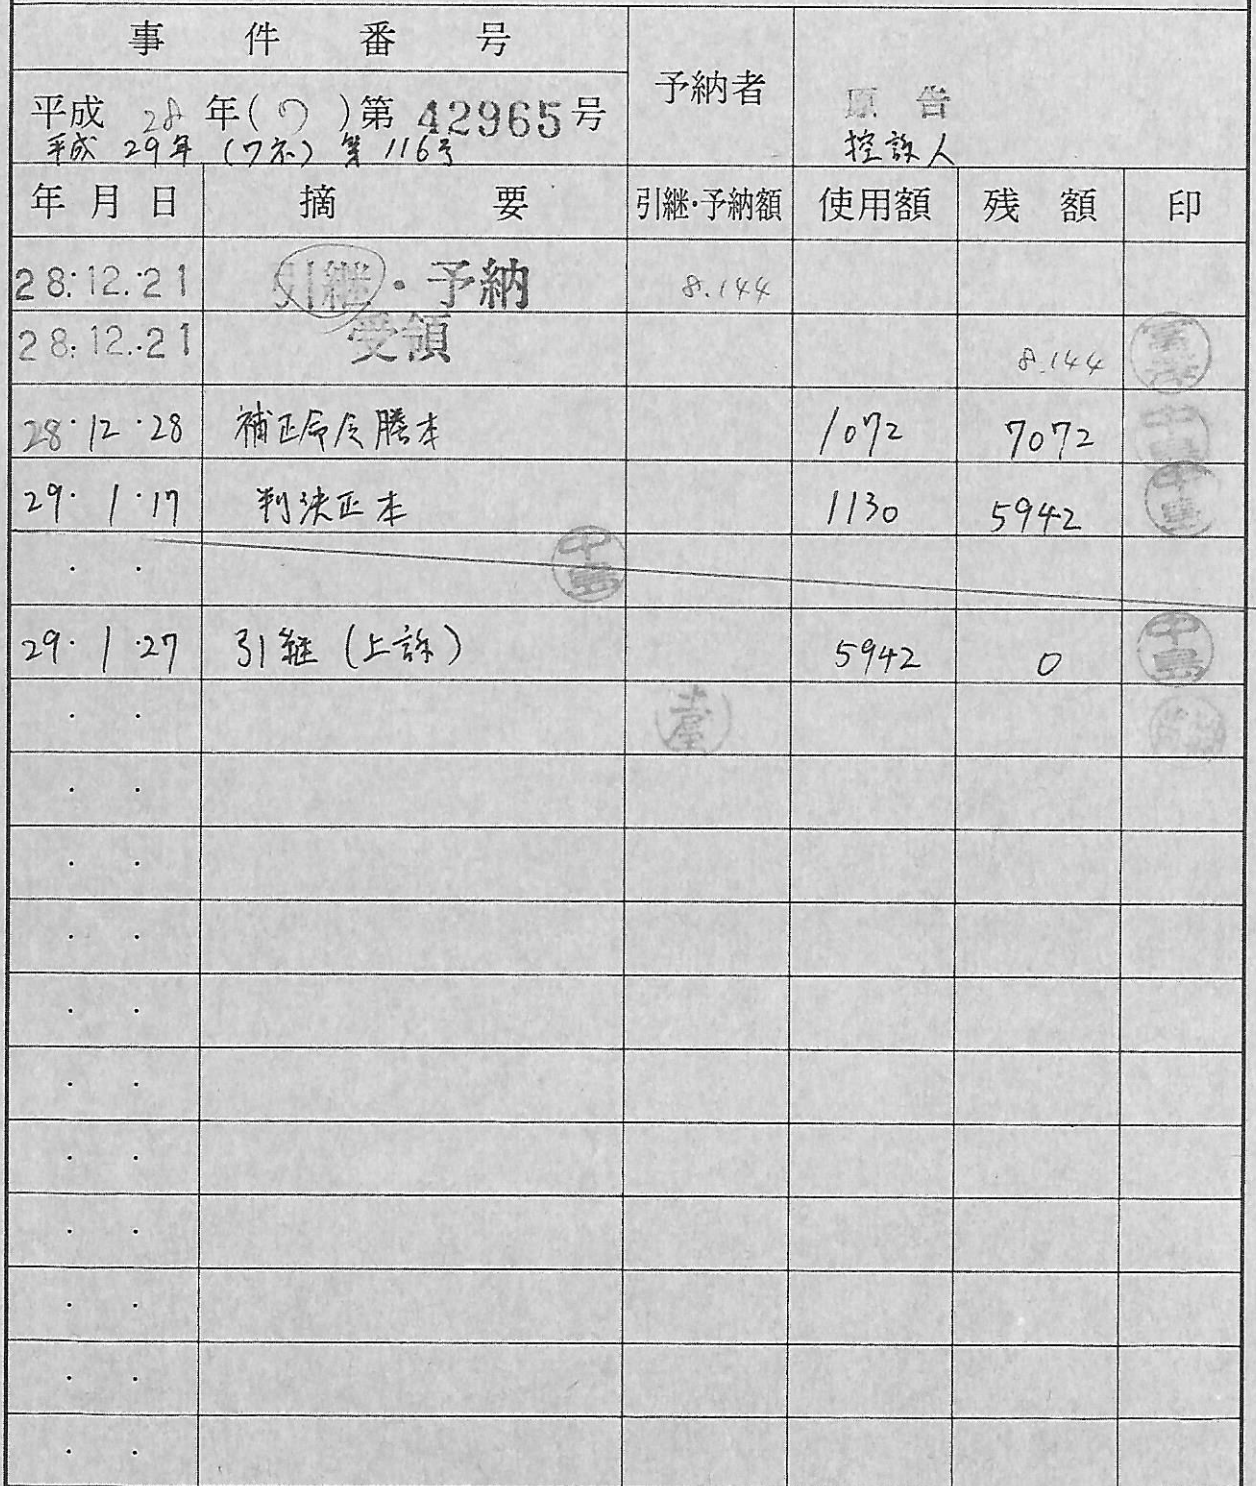 事件番号
予納者
原告
控訴人
平成 28 年(ワ)第 42965 号
平成 29年 (ワネ) 第 116号
年月日 摘要 引継・予納額 使用額 残額 印
28.12.21 引継・予納 8.144
28.12.21 受領 8.144
28・12・28 補正命令謄本 1072 7072 中島
29・1・17 判決正本 1130 5942 中島
中島
29・1・27 引継(上訴) 5942 0 中島
土屋